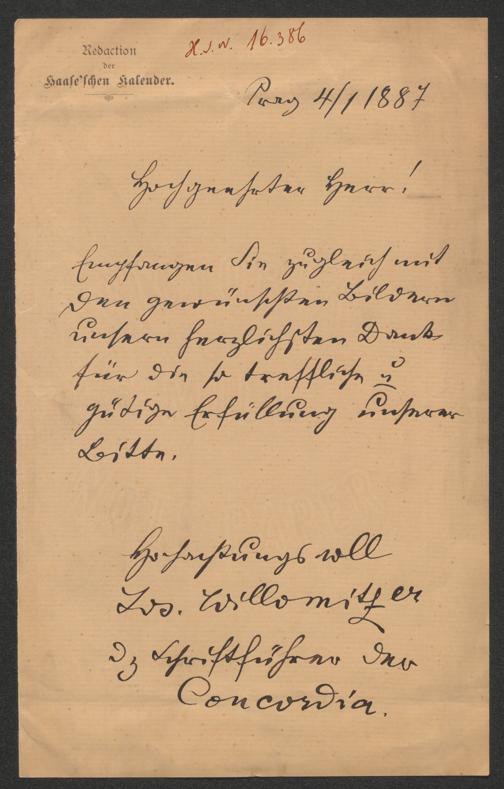 Redaction
der
Haase'schen Kalender.
H.I.N. 16.386
Prag 4/1 1887
Hochgeehrter Herr!
Empfangen Sie zugleich mit
den gewünschten Bildern
unsern herzlichsten Dank
für die so treffliche u
gütige Erfüllung unserer
Bitte.
Hochachtungsvoll
Jos. Willomitzer
dz Schriftführer der
Concordia.